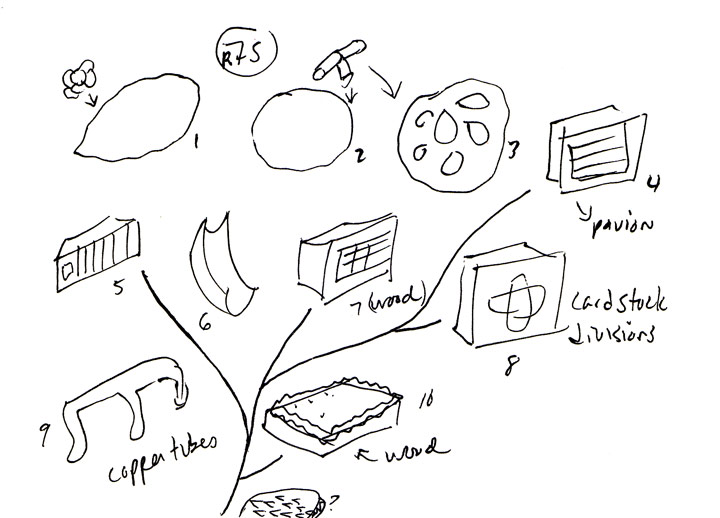 R75
1
2
3
4
5
6
7 (wood)
cardstock
divisions
8
9
10
copper tubes
wood
?